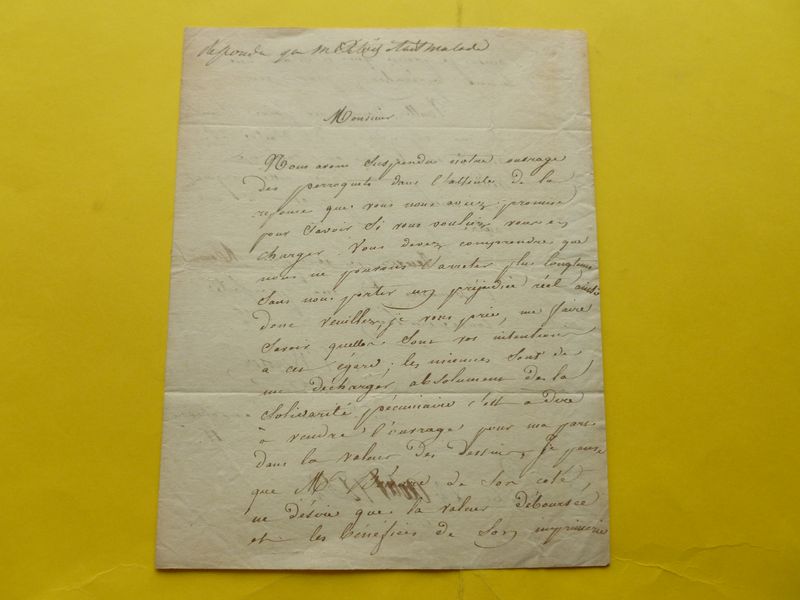 repondu que m était malade
Monsieur
Nous avons suspendu notre ouvrage
des perroquets dans l'attente de la
reponse que vous nous aviez promise
pour savoir si vous vouliez vous en
charger. Vous devez comprendre que
nous ne pouvons l'arreter plus longtems
sans nous porter un préjudice réel ainsi
donc veuillez, je vous prie, me faire
savoir quelles sont vos intention
a cet égard; les miennes sont de
me décharger absolument de la
solidarité pécuniaire c'est a dire
à vendre l'ouvrage pour ma part
dans la valeur des dessins, je pense
que M. de son coté,
ne désire que la valeur déboursée
et les bénéfices de son imprimerie